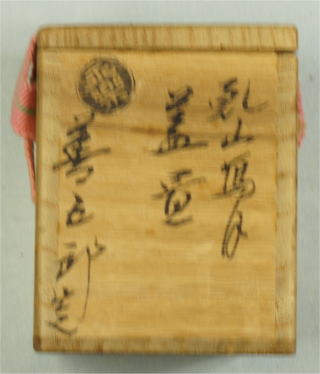 乾山寫
蓋置
善五郎造